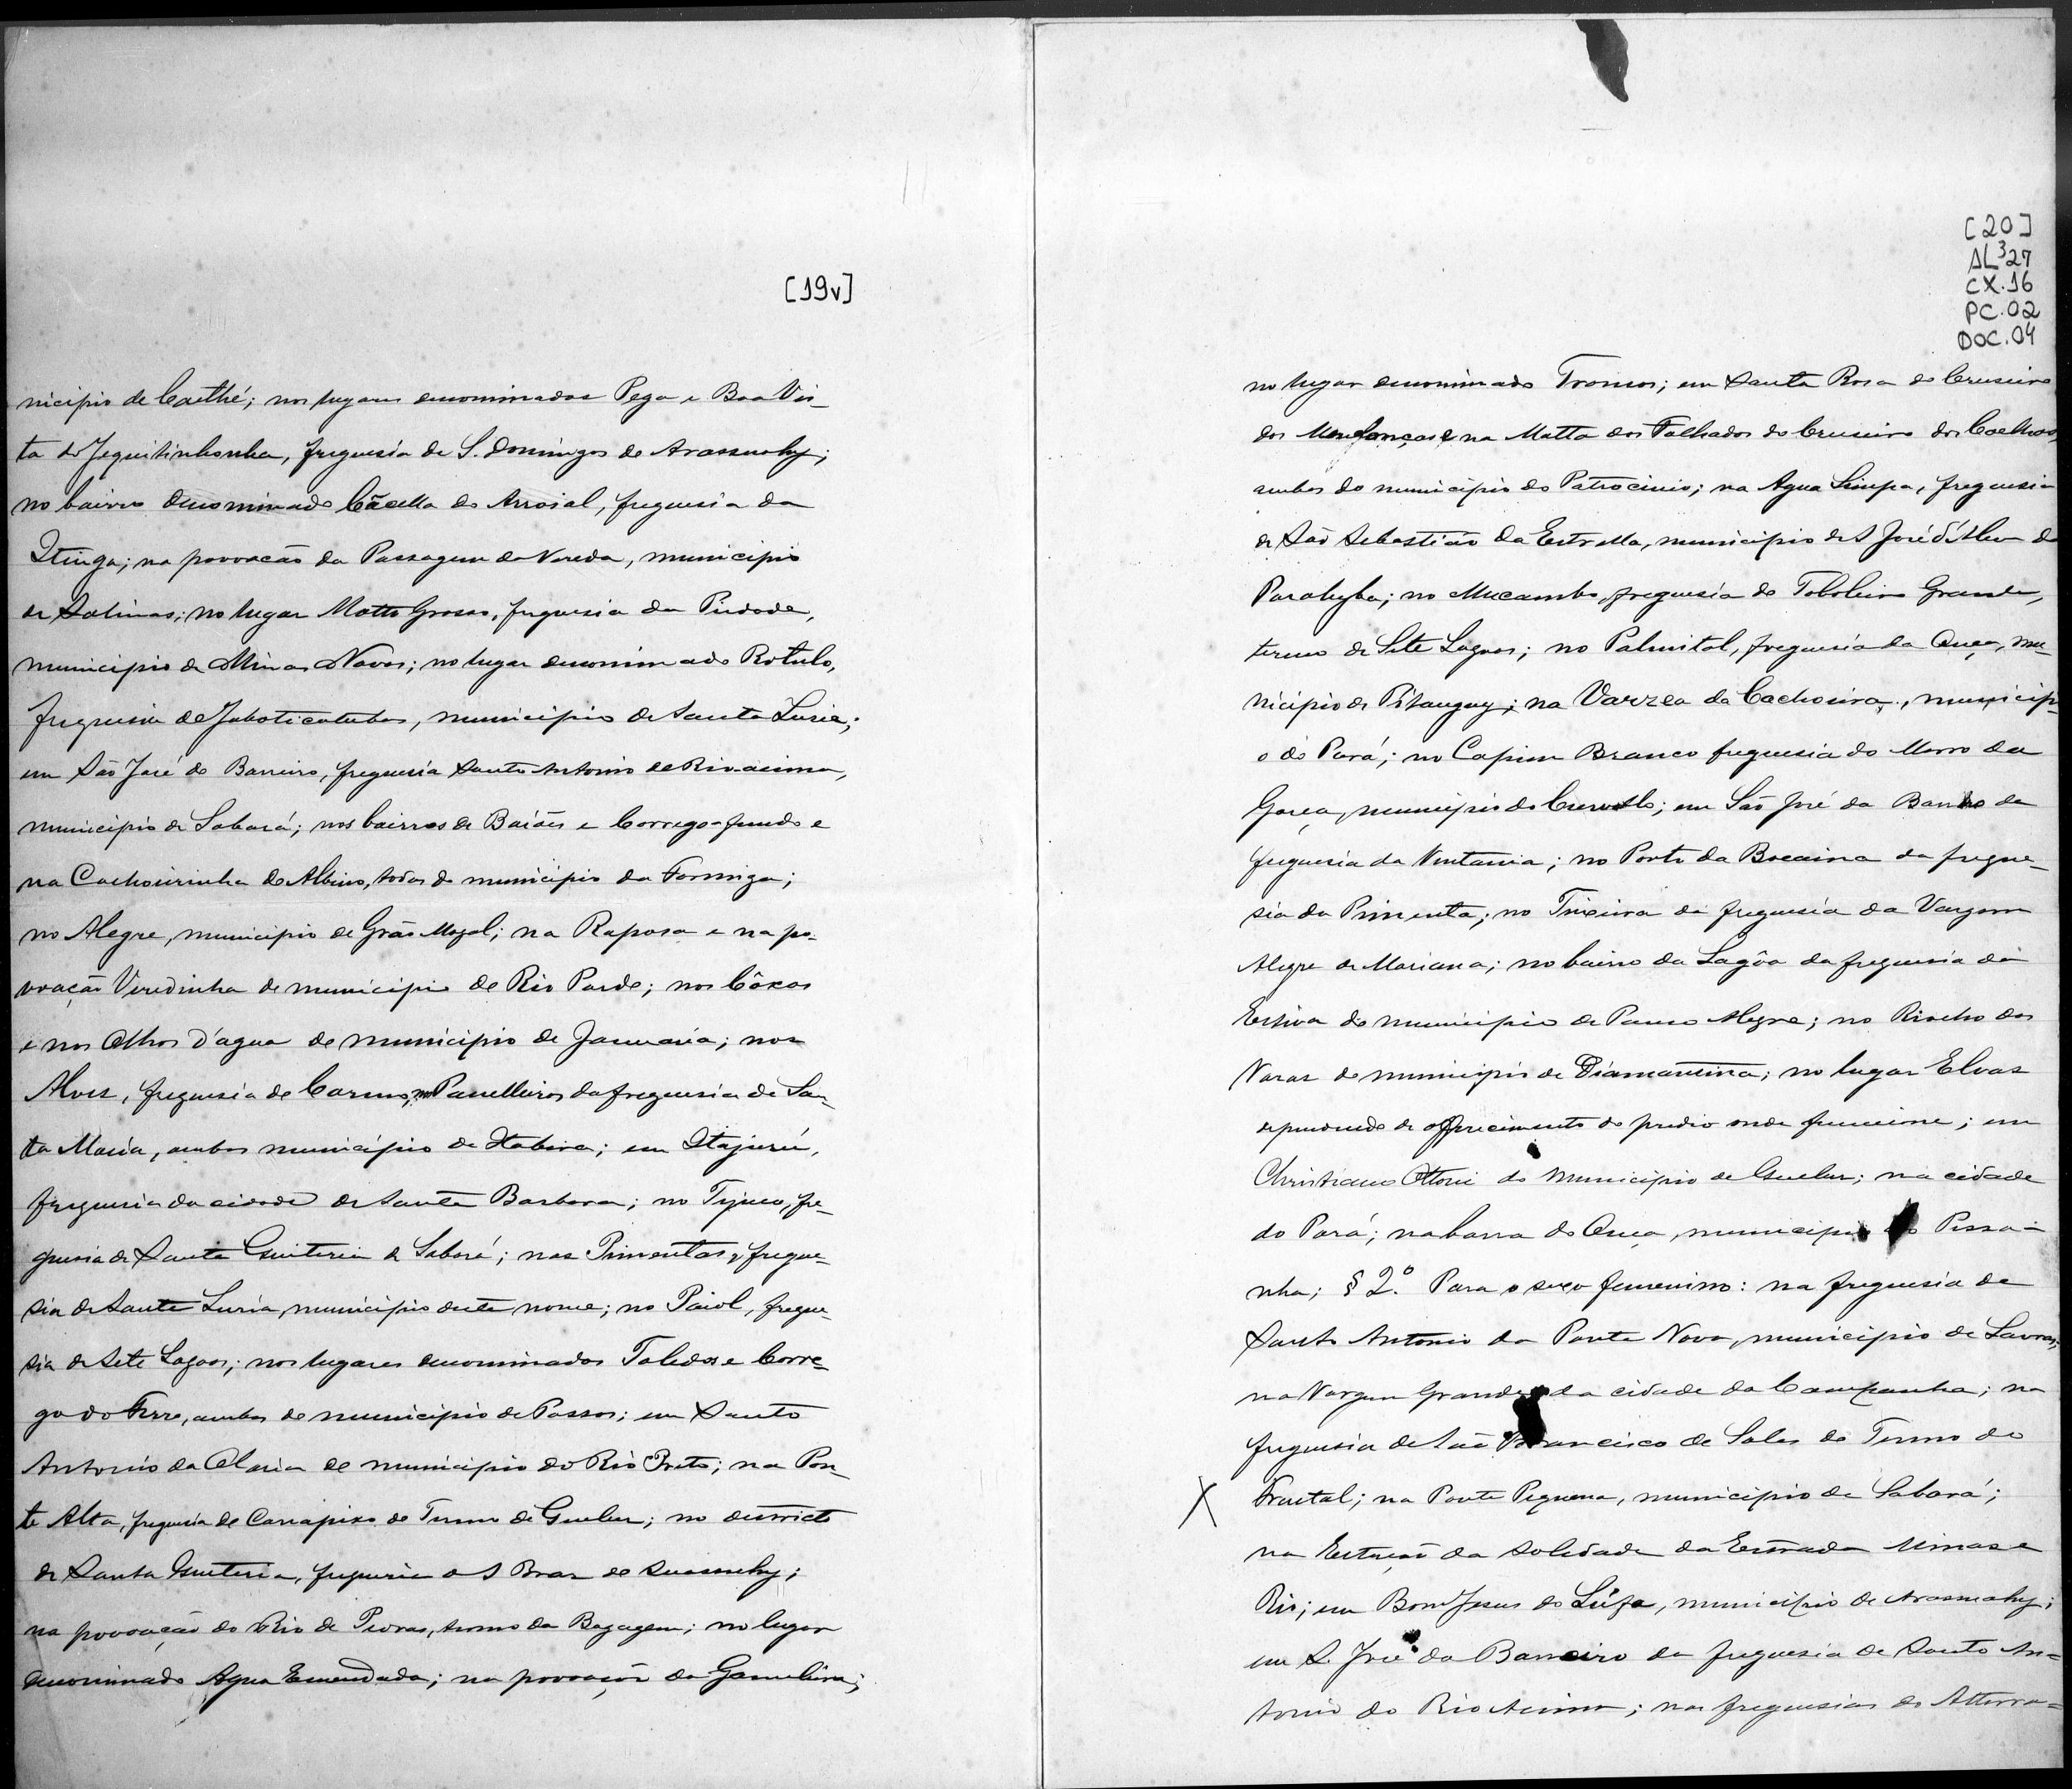 [19v]
nicipio de Caethé; nos lugares denominados Pega e Boa Vis-
ta do Jequitinhonha, freguesia de S. Domingos do Arassuahy;
no bairro denominado Cãcella do Arraial, freguesia da
Itinga; na povoacão da Passagem da Vereda, municipio
de Salinas; no lugar Matto Grosso, freguesia da Piedade,
municipio de Minas Novas; no lugar denominado Rotulo,
freguesia de Jaboticatubas, municipio de Santa Lusia;
em São José do Barreiro, freguesia Santo Antonio do Rio acima,
municipio de Sabará; nos bairros de Baiões e Corrego-fundo e
na Cachoeirinha do Albino, todos do municipio da Formiga;
no Alegre, municipio de Grão Mogol; na Raposa e na po-
voação Veredinha do municipio de Rio Pardo; nos Côxos
e nos Olhos d'agua do municipio de Januaria; nos
Alves, freguesia do Carmo, no Panelleiros da freguesia de San-
ta Maria, ambos municipio de Itabira; em Itajurú,
freguesia da cidade de Santa Barbara; no Tijuco, fre-
guesia de Santa Quiteria de Sabará; nas Pimentas, fregue-
sia de Santa Luzia, municipio deste nome; no Paiol, fregue-
sia de Sete Lagoas; nos lugares denominados Toledos e Corre-
go do Ferro, ambos do municipio de Passos; em Santo
Antonio da Olaria do municipio do Rio Preto; na Pon-
te Alta, freguesia de Carrapixo do Termo de Queluz; no districto
de Santa Quiteria, freguesia de S Braz do Suassuhy;
na povoação do Rio de Pedras, termo da Bagagem; no lugar
denominado Agua Emendada; na povoação da Gamelleira;
[20]
AL³27
CX.16
PC.02
DOC.04
no lugar denominado Troncos; em Santa Rosa do Cruseiro
dos Mendonças e na Matta dos Talhados do Cruseiro dos Coelhos,
ambos do municipio do Patrocinio; na Agua Limpa, freguesia
de São Sebastião da Estrella, municipio de S José d'Alem do
Parahyba; no Mucambo, freguesia do Taboleiro Grande,
termo de Sete Lagoas; no Palmital, freguesia da Onça, mu-
nicipio de Pitanguy; na Varzea da Cachoeira, municipi-
o do Pará; no Capim Branco freguesia do Morro da
Garça, municipio do Curvello; em São José da Barra da
freguesia da Ventania; no Porto da Bocaina da fregue-
sia da Pimenta; no Teixeira da freguesia da Vargem
Alegre de Mariana; no bairro da Lagôa da freguesia da
Estiva do municipio de Pouso Alegre; no Riacho das
Varas do municipio de Diamantina; no lugar Elvas
dependendo de offerecimento do predio onde funccione; em
Christiano Ottoni do Municipio de Queluz; na cidade
do Pará; na barra do Onça, municipio do Pessa-
nha; § 2.º Para o sexo femenino: na freguesia de
Santo Antonio da Ponte Nova, municipio de Lavras;
na Vargem Grande da cidade da Campanha; na
freguesia de São Francisco de Sales do Termo do
X Fructal; na Ponte Pequena, municipio de Sabará;
na Estação da Soledade da Estrada Minas e
Rio; em Bom Jesus do Lufa, municipio de Arassuahy;
em S. José do Barreiro da freguesia de Santo An=
tonio do Rio Acima; nas freguesias do Atterra=